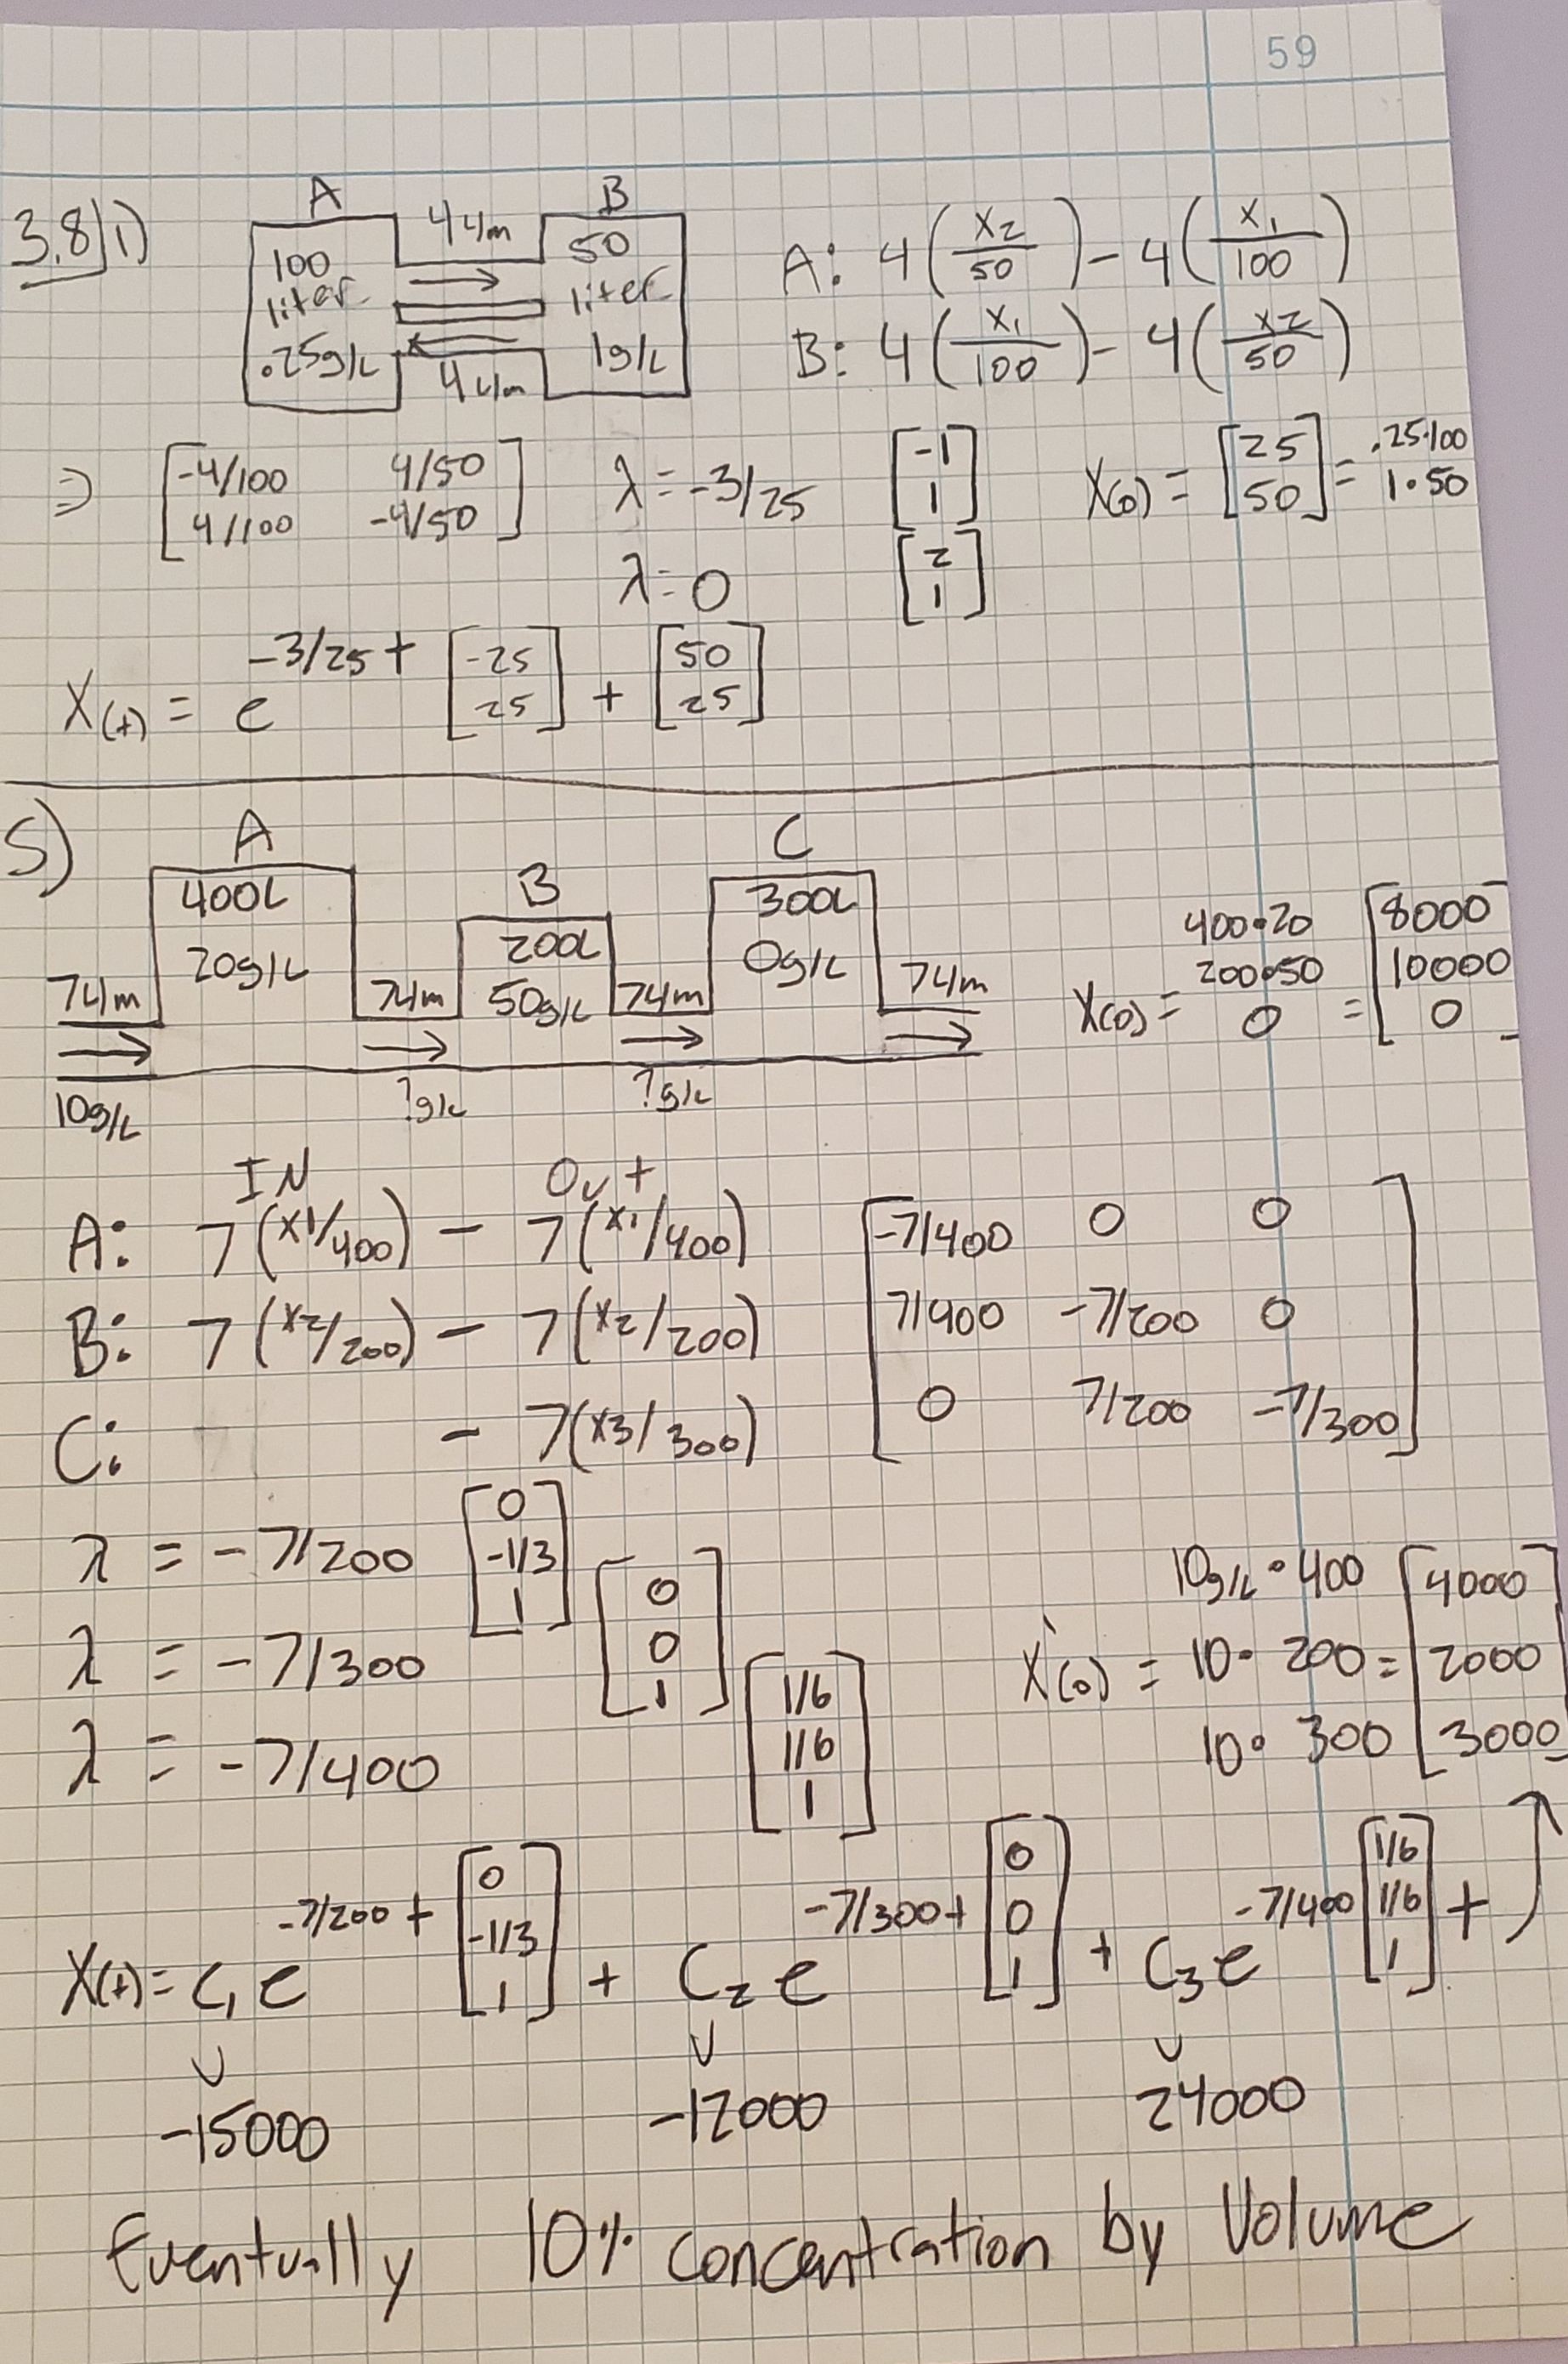 59
3.8 1)
A B
100 liter .25g/L
4 L/m
50 liter 1g/L
4 L/m
A: 4(x₂/50) - 4(x₁/100)
B: 4(x₁/100) - 4(x₂/50)
⇒ [-4/100 4/50
4/100 -4/50]
λ = -3/25 [-1 1]
λ = 0 [2 1]
X(0) = [25 50] = .25·100 1·50
X(t) = e^(-3/25 t) [-25 25] + [50 25]
5)
A B C
400L 20g/L
200L 50g/L
300L 0g/L
7L/m 7L/m 7L/m 7L/m
10g/L ?g/L ?g/L
X(0) = 400·20 200·50 0 = [8000 10000 0]
IN Out
A: 7(x1/400) - 7(x1/400)
B: 7(x2/200) - 7(x2/200)
C: - 7(x3/300)
[-7/400 0 0
7/400 -7/200 0
0 7/200 -7/300]
λ = -7/200 [0 -1/3 1]
λ = -7/300 [0 0 1]
λ = -7/400 [1/6 1/6 1]
X(0) = 10g/L·400 10·200 10·300 = [4000 2000 3000]
X(t) = c₁e^(-7/200 t) [0 -1/3 1] + C₂e^(-7/300 t) [0 0 1] + C₃e^(-7/400) [1/6 1/6 1] +
-15000 -12000 24000
Eventually 10% concentration by Volume